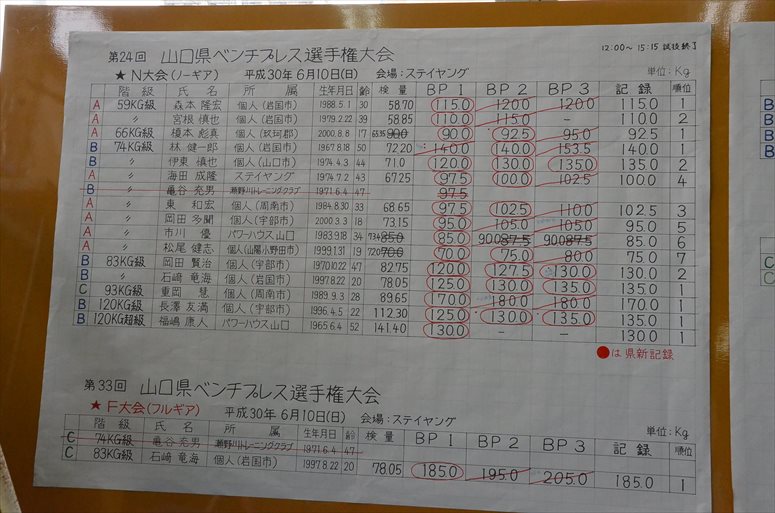 12:00〜15:15 試技終了
第24回 山口県ベンチプレス選手権大会
★N大会(ノーギア) 平成30年6月10日(日) 会場:ステイヤング 単位:Kg
階級 氏名 所属 生年月日 齢 検量 BP1 BP2 BP3 記録 順位
A 59KG級 森本隆宏 個人(岩国市) 1988.5.1 30 58.70 115.0 120.0 120.0 115.0 1
A 〃 宮根慎也 個人(岩国市) 1979.2.22 39 58.85 110.0 115.0 - 110.0 2
A 66KG級 榎本彪真 個人(玖珂郡) 2000.8.8 17 65.35 90.0 92.5 95.0 92.5 1
B 74KG級 林健一郎 個人(岩国市) 1967.8.18 50 72.20 140.0 140.0 153.5 140.0 1
B 〃 伊東慎也 個人(山口市) 1974.4.3 44 71.0 120.0 130.0 135.0 135.0 2
A 〃 海田成隆 ステイヤング 1974.7.2 43 67.25 97.5 100.0 102.5 100.0 4
B 〃 亀谷充男 瀬野川トレーニングクラブ 1971.6.4 47 97.5
A 〃 東和宏 個人(周南市) 1984.8.30 33 68.65 97.5 102.5 110.0 102.5 3
A 〃 岡田多聞 個人(宇部市) 2000.3.3 18 73.15 95.0 105.0 105.0 95.0 5
A 〃 市川優 パワーハウス山口 1983.9.18 34 73.4 85.0 85.0 90.0 87.5 90.0 87.5 85.0 6
A 〃 松尾健志 個人(山陽小野田市) 1999.1.31 19 72.0 70.0 70.0 75.0 80.0 75.0 7
B 83KG級 岡田賢治 個人(宇部市) 1970.10.22 47 82.75 120.0 127.5 130.0 130.0 2
B 〃 石﨑竜海 個人(岩国市) 1997.8.22 20 78.05 125.0 130.0 135.0 135.0 1
C 93KG級 重岡慧 個人(周南市) 1989.9.3 28 89.65 170.0 180.0 180.0 170.0 1
B 120KG級 長澤友満 個人(宇部市) 1996.4.5 22 112.30 125.0 130.0 135.0 135.0 1
B 120KG超級 福嶋康人 パワーハウス山口 1965.6.4 52 141.40 130.0 - - 130.0 1
●は県新記録
第33回 山口県ベンチプレス選手権大会
★F大会(フルギア) 平成30年6月10日(日) 会場:ステイヤング 単位:Kg
階級 氏名 所属 生年月日 齢 検量 BP1 BP2 BP3 記録 順位
C 74KG級 亀谷充男 瀬野川トレーニングクラブ 1971.6.4 47
C 83KG級 石﨑竜海 個人(岩国市) 1997.8.22 20 78.05 185.0 195.0 205.0 185.0 1